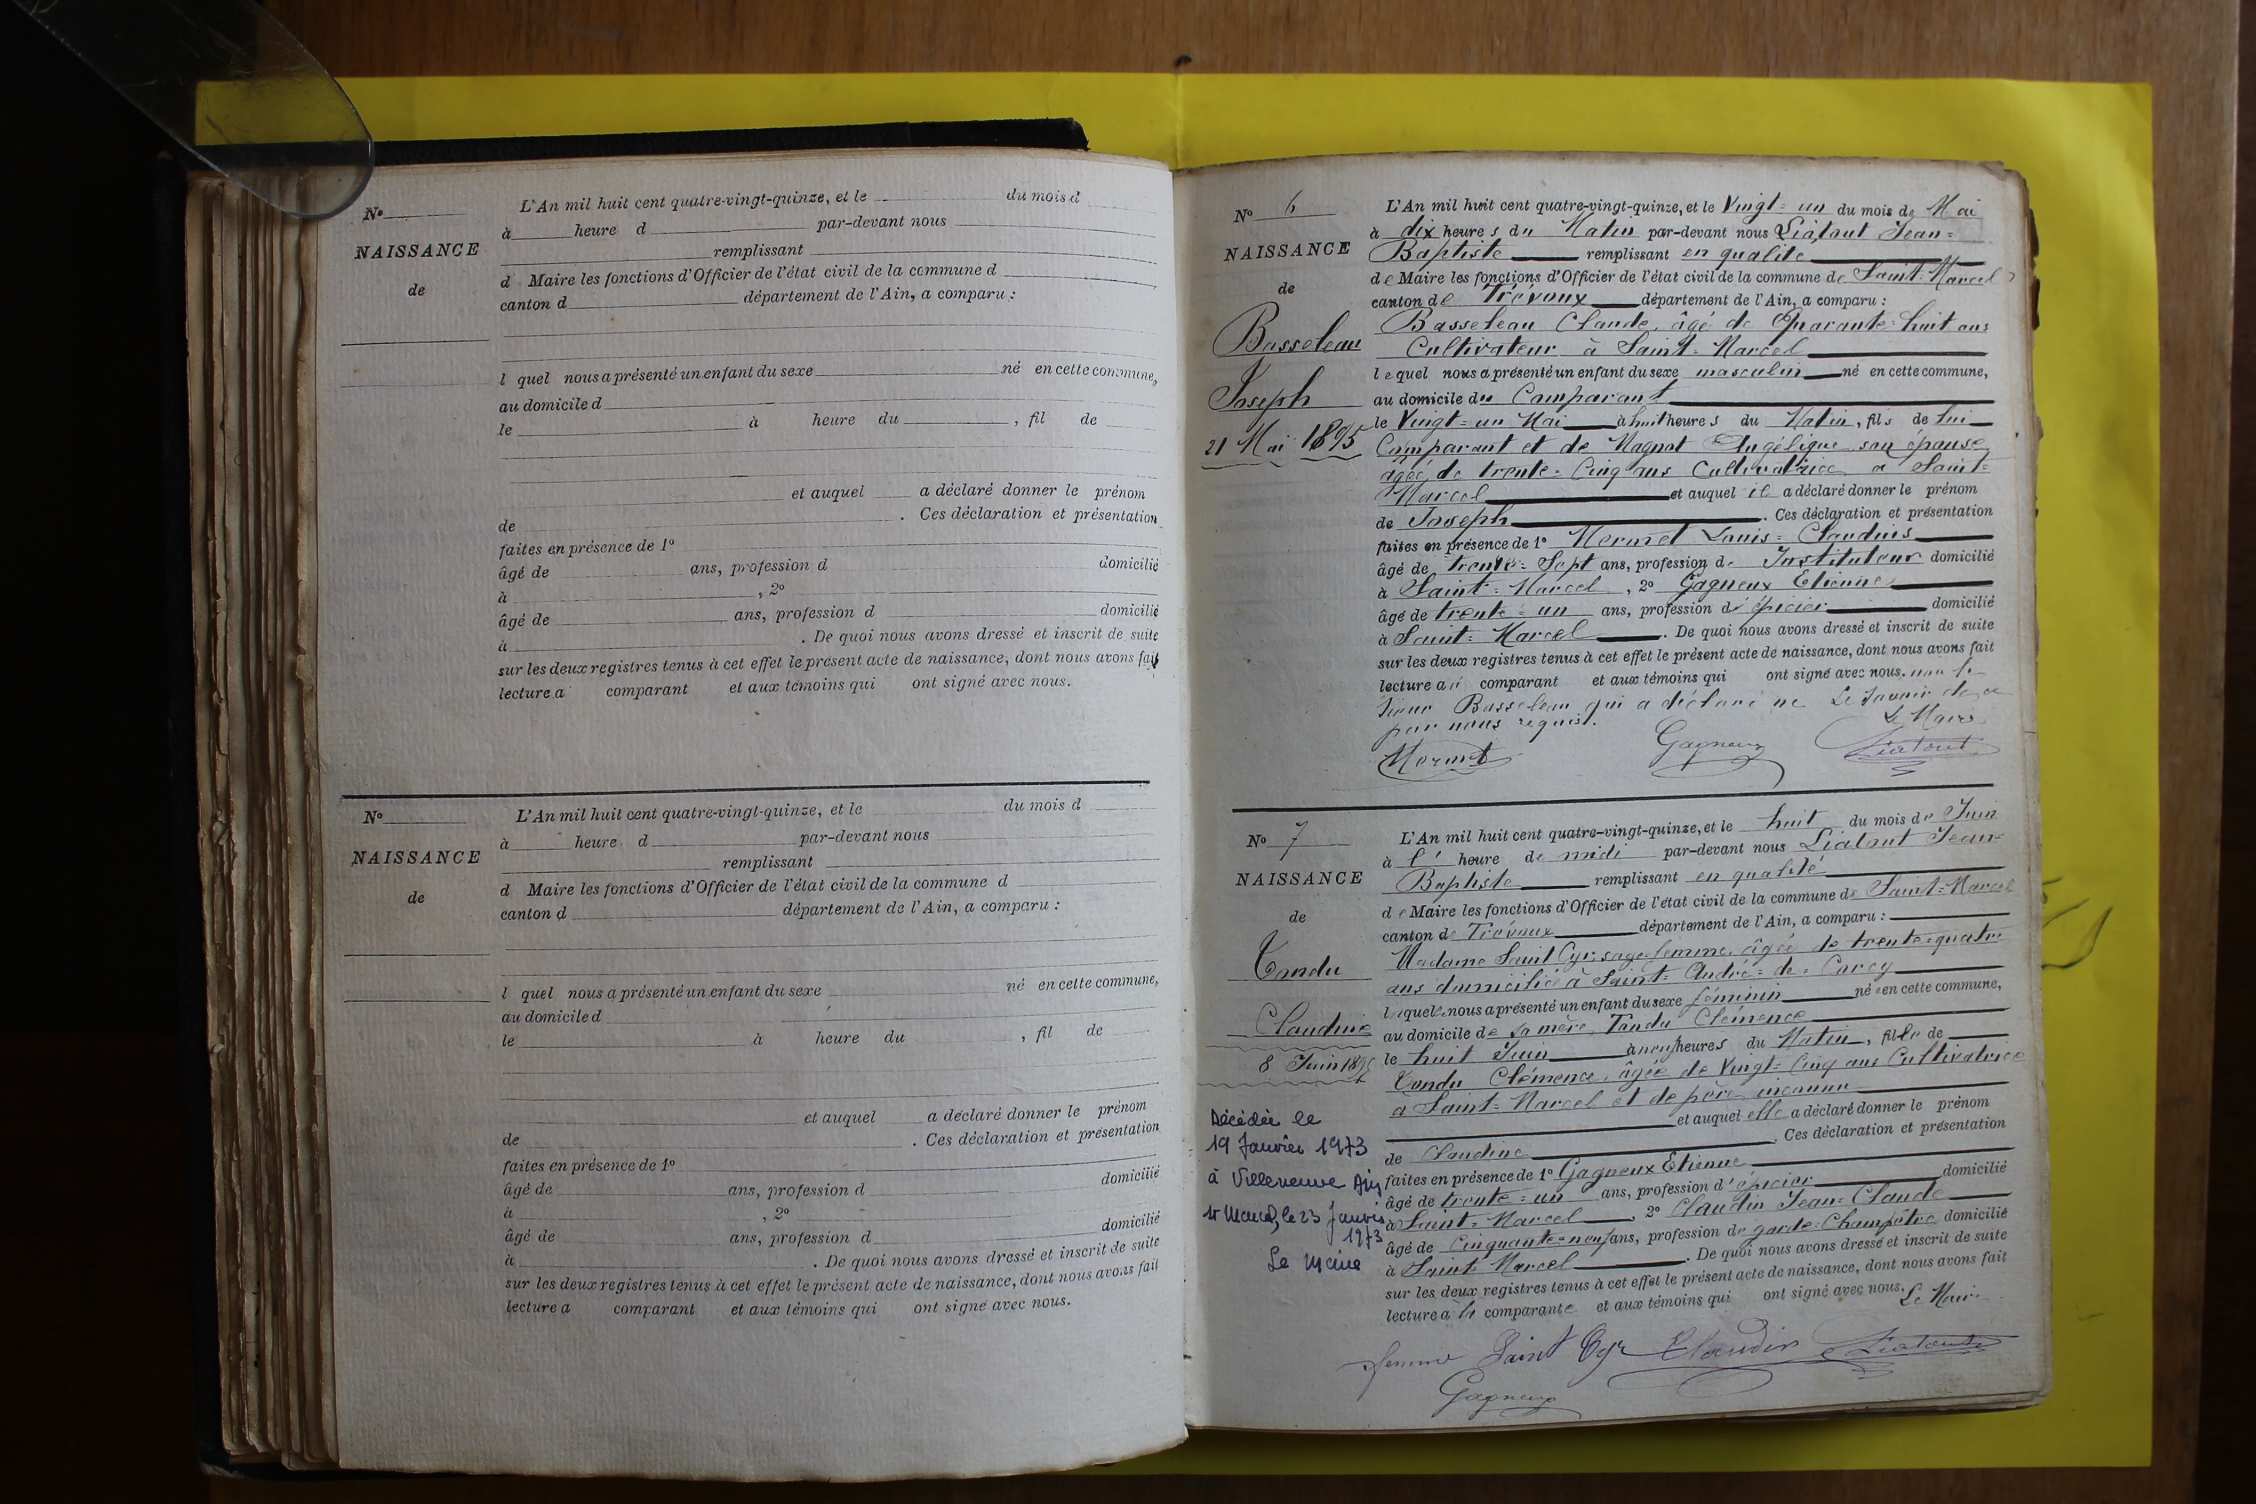 No
NAISSANCE
de
L'An mil huit cent quatre-vingt-quinze, et le du mois d
à heure d par-devant nous
remplissant
d Maire les fonctions d'Officier de l'état civil de la commune d
canton d département de l'Ain, a comparu :
l quel nous a présenté un enfant du sexe né en cette commune,
au domicile d
le à heure du , fil de
et auquel a déclaré donner le prénom
de . Ces déclaration et présentation
faites en présence de 1o
âgé de ans, profession d domicilié
à , 2o
âgé de ans, profession d domicilié
à . De quoi nous avons dressé et inscrit de suite
sur les deux registres tenus à cet effet le présent acte de naissance, dont nous avons fait
lecture a comparant et aux témoins qui ont signé avec nous.
No
NAISSANCE
de
L'An mil huit cent quatre-vingt-quinze, et le du mois d
à heure d par-devant nous
remplissant
d Maire les fonctions d'Officier de l'état civil de la commune d
canton d département de l'Ain, a comparu :
l quel nous a présenté un enfant du sexe né en cette commune,
au domicile d
le à heure du , fil de
et auquel a déclaré donner le prénom
de . Ces déclaration et présentation
faites en présence de 1o
âgé de ans, profession d domicilié
à , 2o
âgé de ans, profession d domicilié
à . De quoi nous avons dressé et inscrit de suite
sur les deux registres tenus à cet effet le présent acte de naissance, dont nous avons fait
lecture a comparant et aux témoins qui ont signé avec nous.
No 6
NAISSANCE
de
Basseleau
Joseph
21 Mai 1895
L'An mil huit cent quatre-vingt-quinze, et le Vingt=un du mois de Mai
à dix heures du Matin par-devant nous Liatout Jean=
Baptiste remplissant en qualité
de Maire les fonctions d'Officier de l'état civil de la commune de Saint=Marcel
canton de Trévoux département de l'Ain, a comparu :
Basseleau Claude, âgé de Quarante=huit ans
Cultivateur à Saint=Marcel
lequel nous a présenté un enfant du sexe masculin né en cette commune,
au domicile du Comparant
le Vingt=un Mai à huit heures du Matin, fils de lui
Comparant et de Magnot Angélique son épouse
âgée de trente=Cinq ans Cultivatrice à Saint=
Marcel et auquel il a déclaré donner le prénom
de Joseph . Ces déclaration et présentation
faites en présence de 1o Mermet Louis=Claudius
âgé de trente=Sept ans, profession d' Instituteur domicilié
à Saint=Marcel , 2o Gagneux Etienne
âgé de trente=un ans, profession d'épicier domicilié
à Saint=Marcel . De quoi nous avons dressé et inscrit de suite
sur les deux registres tenus à cet effet le présent acte de naissance, dont nous avons fait
lecture au comparant et aux témoins qui ont signé avec nous. non le
sieur Basseleau qui a déclaré ne le savoir de ce
par nous requis.
Le Maire
Mermet Gagneux Liatout
No 7
NAISSANCE
de
Tondu
Claudine
8 Juin 1895
Décédée le
19 Janvier 1973
à Villeneuve Ain
St Marcel, le 23 Janvier
1973
Le Maire
L'An mil huit cent quatre-vingt-quinze, et le huit du mois de Juin
à l' heure de midi par-devant nous Liatout Jean=
Baptiste remplissant en qualité
de Maire les fonctions d'Officier de l'état civil de la commune de Saint=Marcel
canton de Trévoux département de l'Ain, a comparu :
Madame Saint Cyr sage-femme, âgée de trente=quatre
ans domiciliée à Saint=André=de=Corcy
laquelle nous a présenté un enfant du sexe féminin née en cette commune,
au domicile de sa mère Tondu Clémence
le huit Juin à neuf heures du Matin, fille de
Tondu Clémence, âgée de Vingt=Cinq ans Cultivatrice
à Saint=Marcel et de père inconnu
et auquel elle a déclaré donner le prénom
de Claudine . Ces déclaration et présentation
faites en présence de 1o Gagneux Etienne
âgé de trente=un ans, profession d'épicier domicilié
à Saint=Marcel , 2o Claudin Jean=Claude
âgé de Cinquante=neuf ans, profession de garde=Champêtre domicilié
à Saint Marcel . De quoi nous avons dressé et inscrit de suite
sur les deux registres tenus à cet effet le présent acte de naissance, dont nous avons fait
lecture a la comparante et aux témoins qui ont signé avec nous. Le Maire
femme Saint Cyr Claudin Liatout
Gagneux